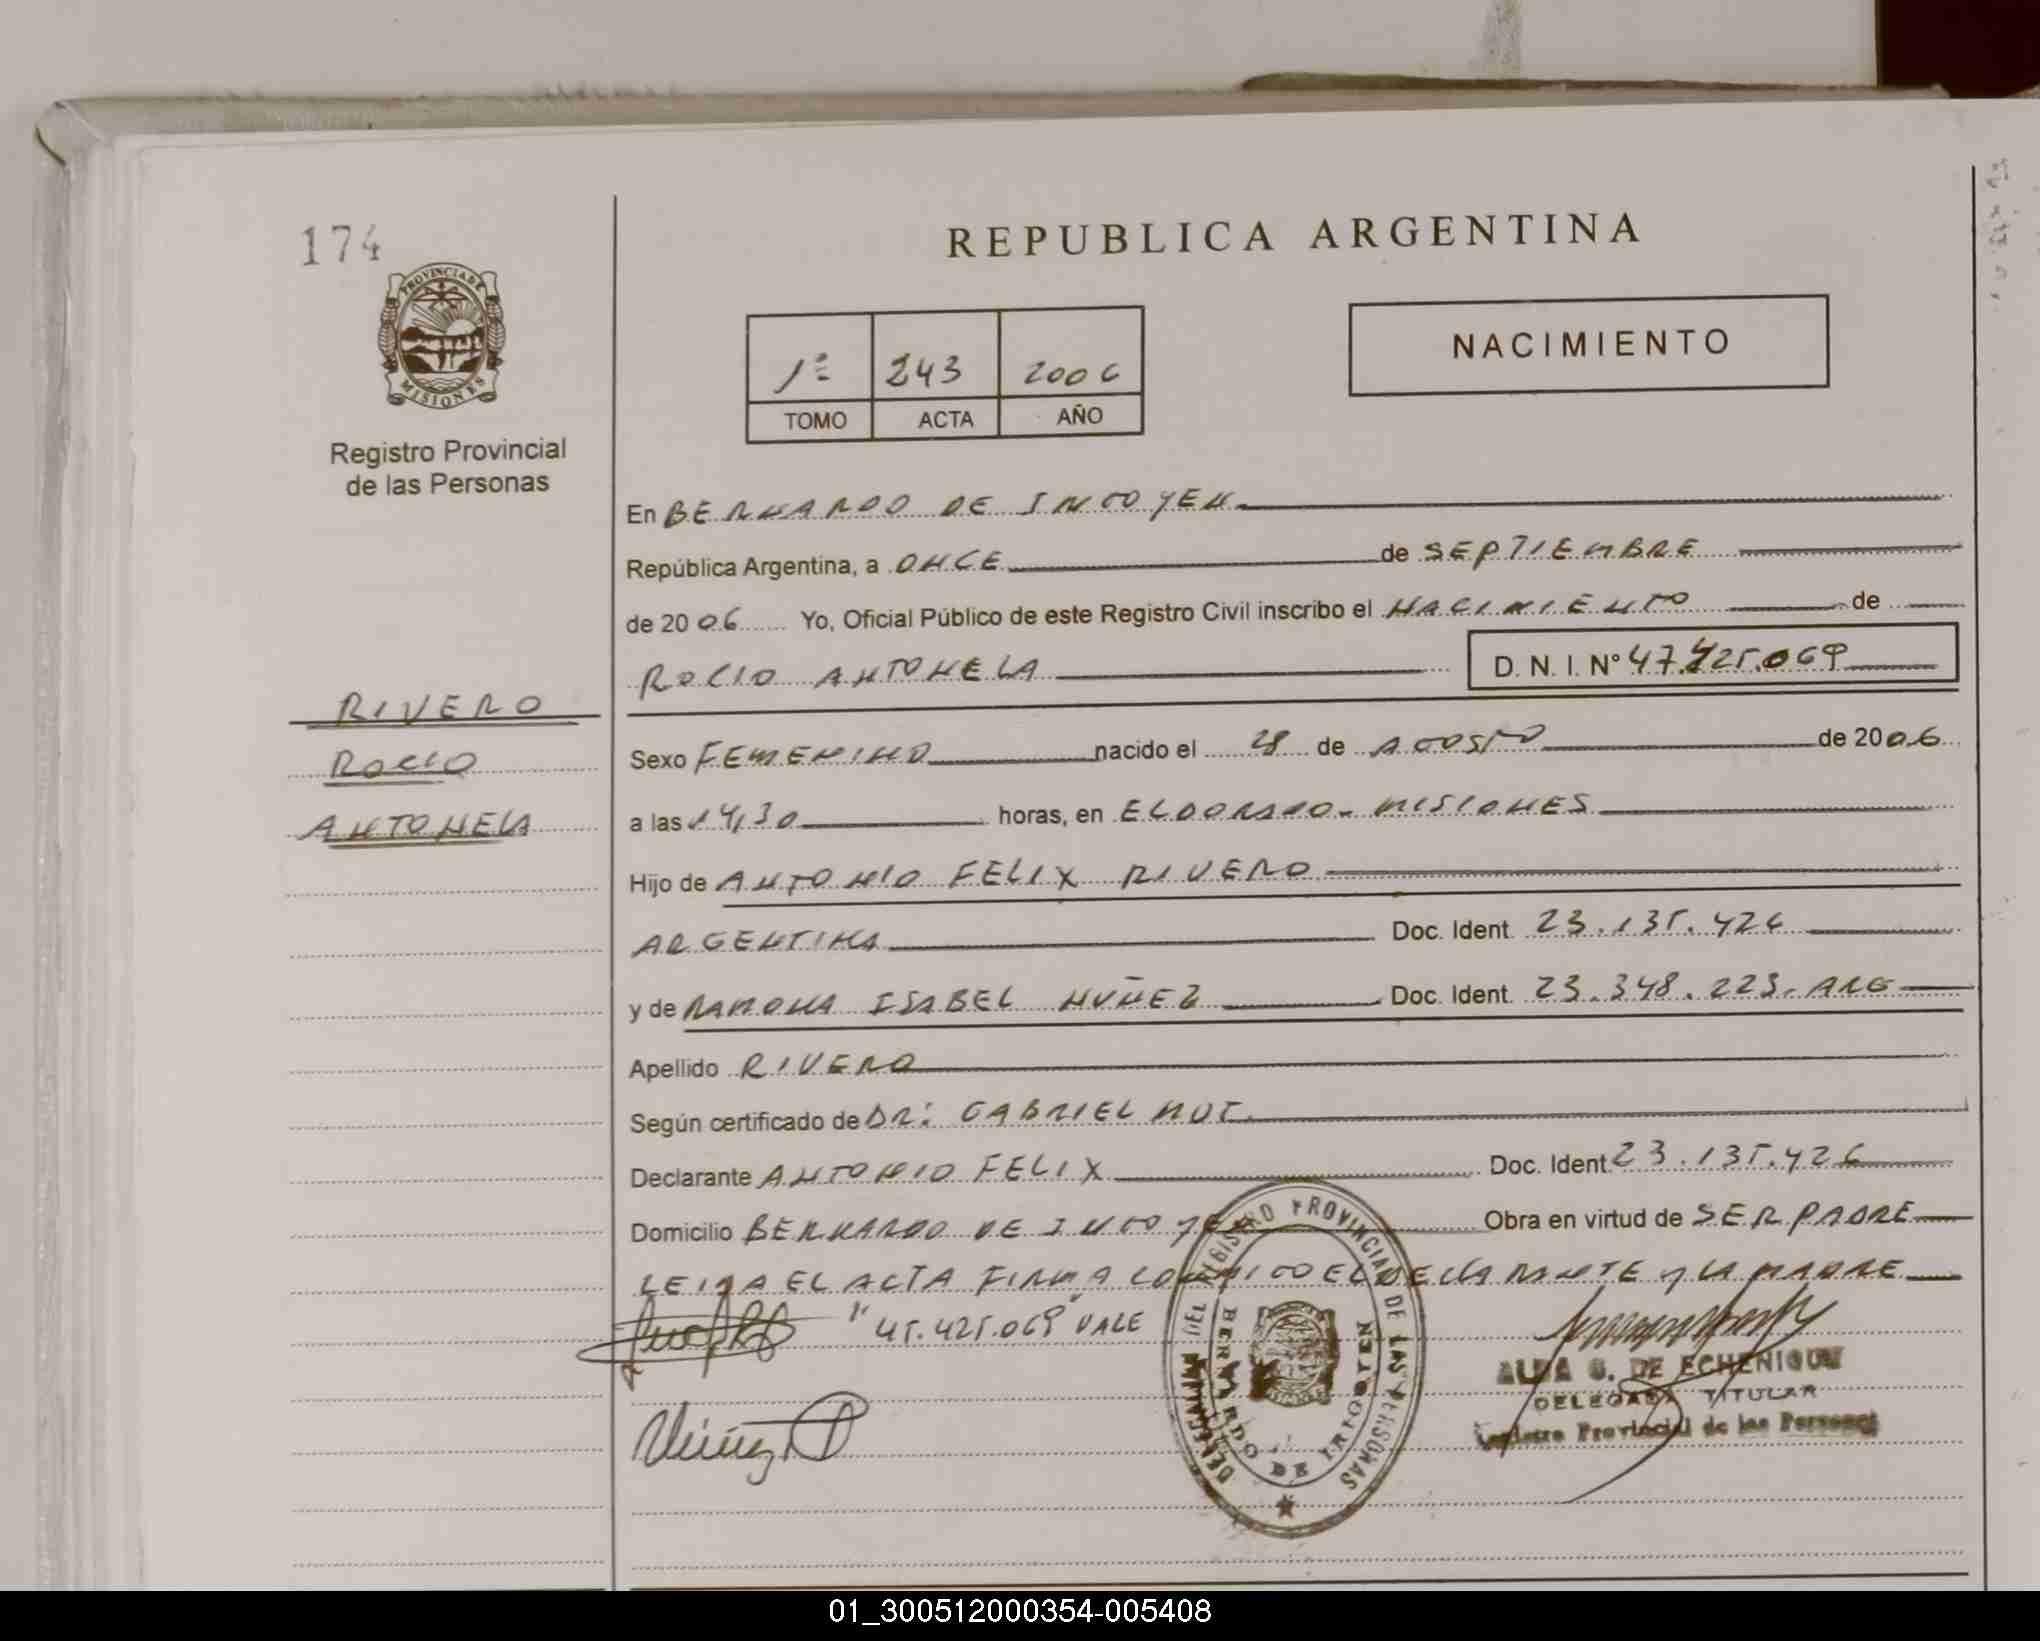 REPUBLICA ARGENTINA
174
PROVINCIA DE
MISIONES
Registro Provincial
de las Personas
1º 243 2006
TOMO ACTA AÑO
NACIMIENTO
En BERNARDO DE IRIGOYEN
República Argentina, a ONCE de SEPTIEMBRE
de 2006 Yo, Oficial Público de este Registro Civil inscribo el NACIMIENTO de
ROCIO ANTONELA D. N. I. Nº 47.425.069
RIVERO
ROCIO
ANTONELA
Sexo FEMENINO nacido el 28 de AGOSTO de 2006
a las 14,30 horas, en ELDORADO - MISIONES
Hijo de ANTONIO FELIX RIVERO
ARGENTINA Doc. Ident. 23.135.426
y de RAMONA ISABEL NUÑEZ Doc. Ident. 23.348.223. ARG
Apellido RIVERO
Según certificado de DR: GABRIEL
Declarante ANTONIO FELIX Doc. Ident. 23.135.426
Domicilio BERNARDO DE IRIGOYEN Obra en virtud de SER PADRE
LEIDA EL ACTA FIRMA CONMIGO EL DECLARANTE Y LA MADRE
"45.425.069" VALE
Núñez R
DELEGACION DEL REGISTRO PROVINCIAL DE LAS PERSONAS
BERNARDO DE IRIGOYEN
ALBA G. DE ECHENIQUE
DELEGADA TITULAR
Registro Provincial de las Personas
01_300512000354-005408